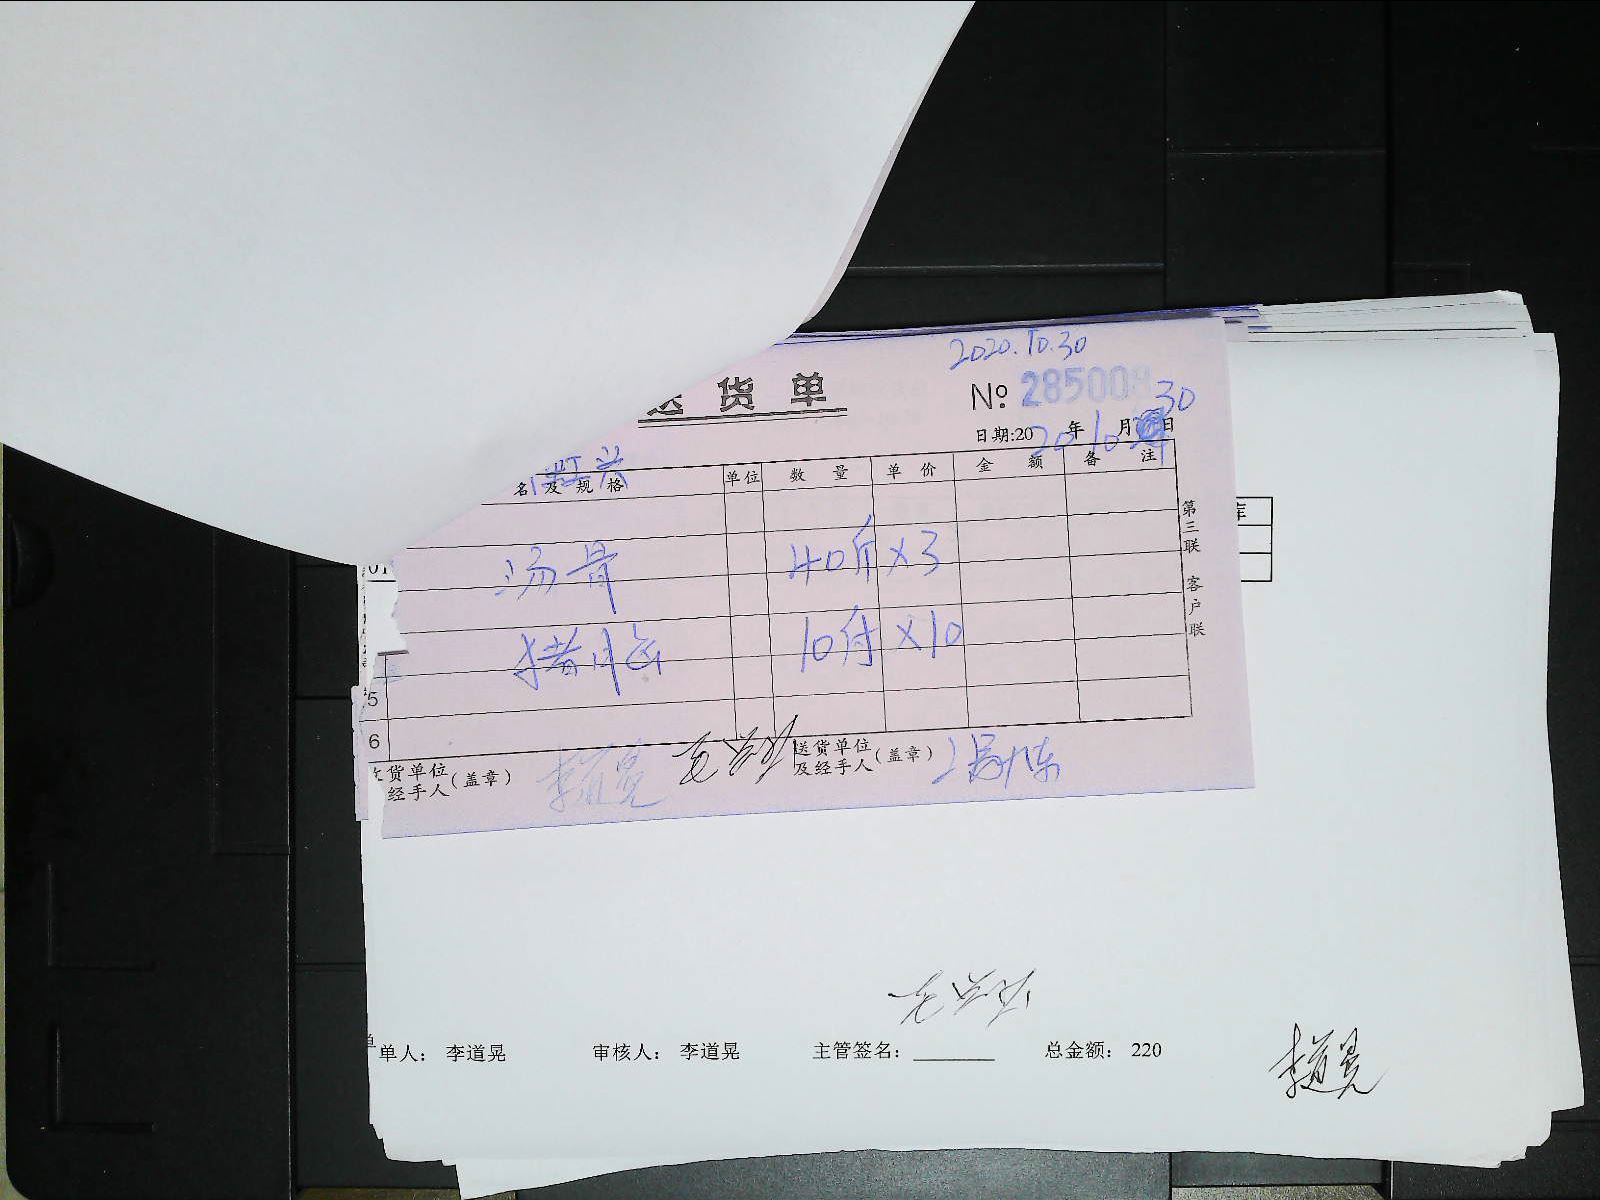 2020.10.30
送货单
№ 285008
30
日期:20 20 年 10 月 日
兴
名及规格 单位 数量 单价 金额 备注
汤骨 40斤 ×3
猪 10付 ×10
5
6
货单位
经手人(盖章) 李道晃
送货单位
及经手人(盖章)
第三联 客户联
库
01
单人: 李道晃 审核人: 李道晃 主管签名: ________ 总金额: 220
李道晃